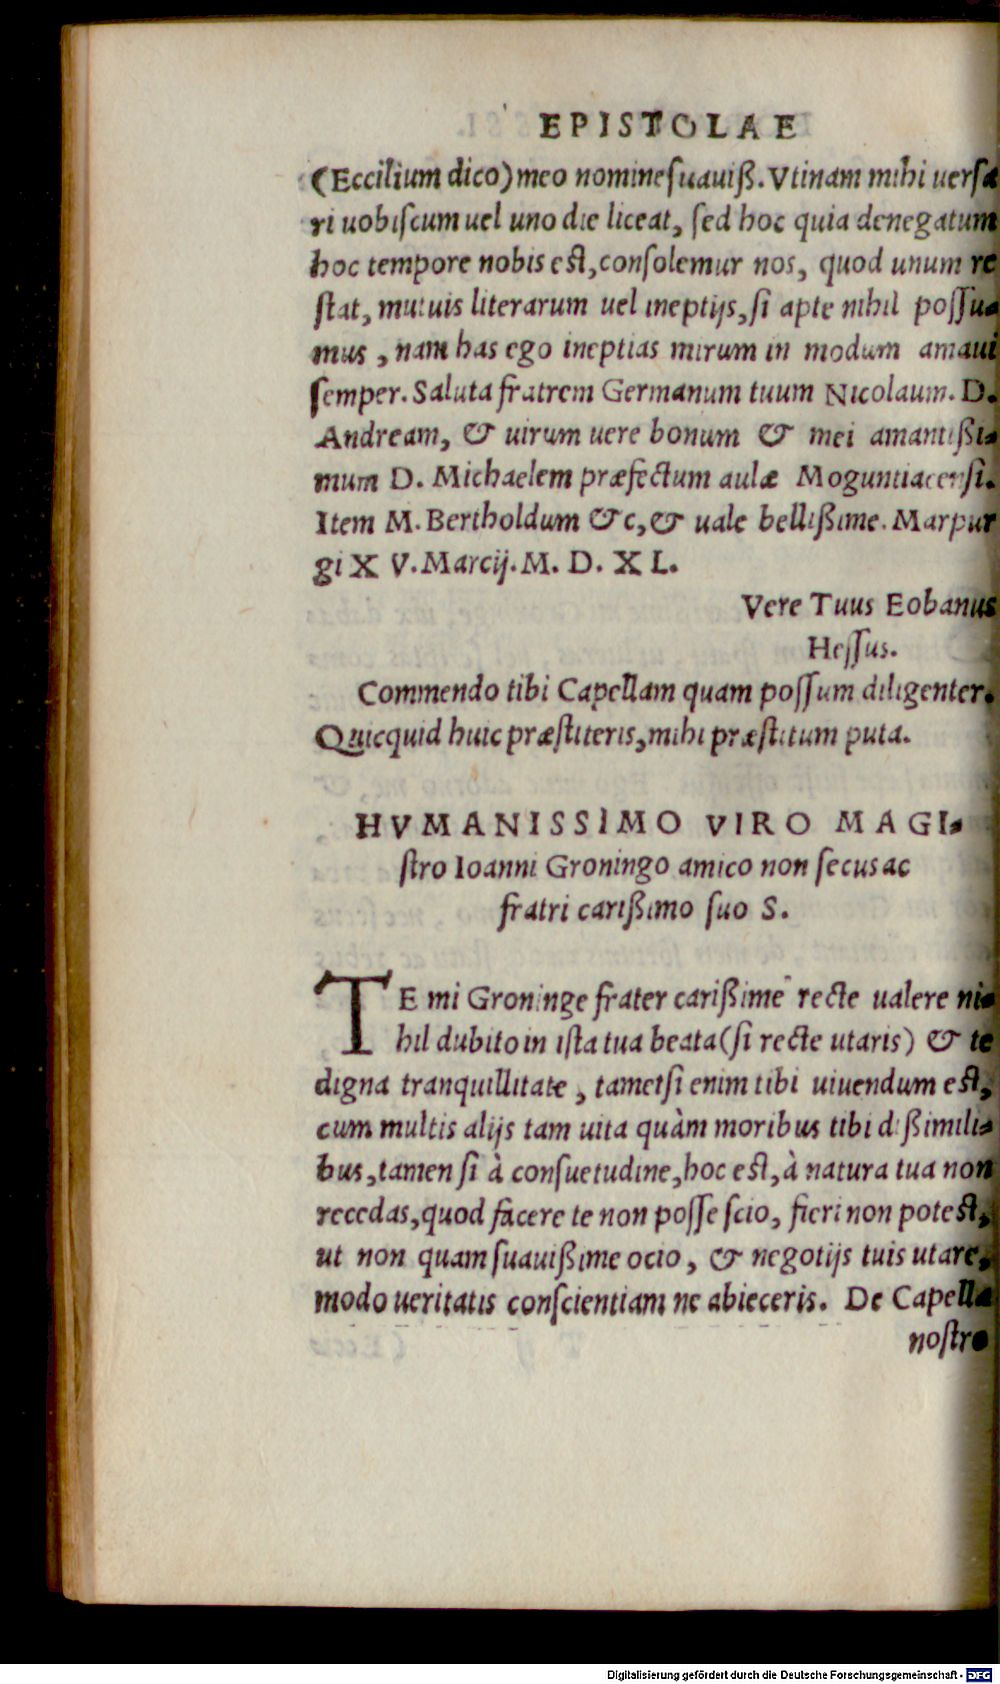 EPISTOLAE
(Eccilium dico) meo nomine suauiß. Vtinam mihi uersa
ri uobiscum uel uno die liceat, sed hoc quia denegatum
hoc tempore nobis est, consolemur nos, quod unum re
stat, mutuis literarum uel ineptijs, si apte nihil possu-
mus, nam has ego ineptias mirum in modum amaui
semper. Saluta fratrem Germanum tuum Nicolaum. D.
Andream, & uirum uere bonum & mei amantißi-
mum D. Michaelem præfectum aulæ Moguntiacensi.
Item M. Bertholdum &c, & uale bellißime. Marpur
gi XV. Marcij. M. D. XL.
Vere Tuus Eobanus
Hessus.
Commendo tibi Capellam quam possum diligenter.
Quicquid huic præstiteris, mihi præstitum puta.
HVMANISSIMO VIRO MAGI-
stro Ioanni Groningo amico non secus ac
fratri carißimo suo S.
TE mi Groninge frater carißime recte ualere ni-
hil dubito in ista tua beata (si recte utaris) & te
digna tranquillitate, tametsi enim tibi uiuendum est,
cum multis alijs tam uita quàm moribus tibi dißimili-
bus, tamen si à consuetudine, hoc est, à natura tua non
recedas, quod facere te non posse scio, fieri non potest,
ut non quam suauißime ocio, & negotijs tuis utare,
modo ueritatis conscientiam ne abieceris. De Capella
nostro
Digitalisierung gefördert durch die Deutsche Forschungsgemeinschaft - DFG